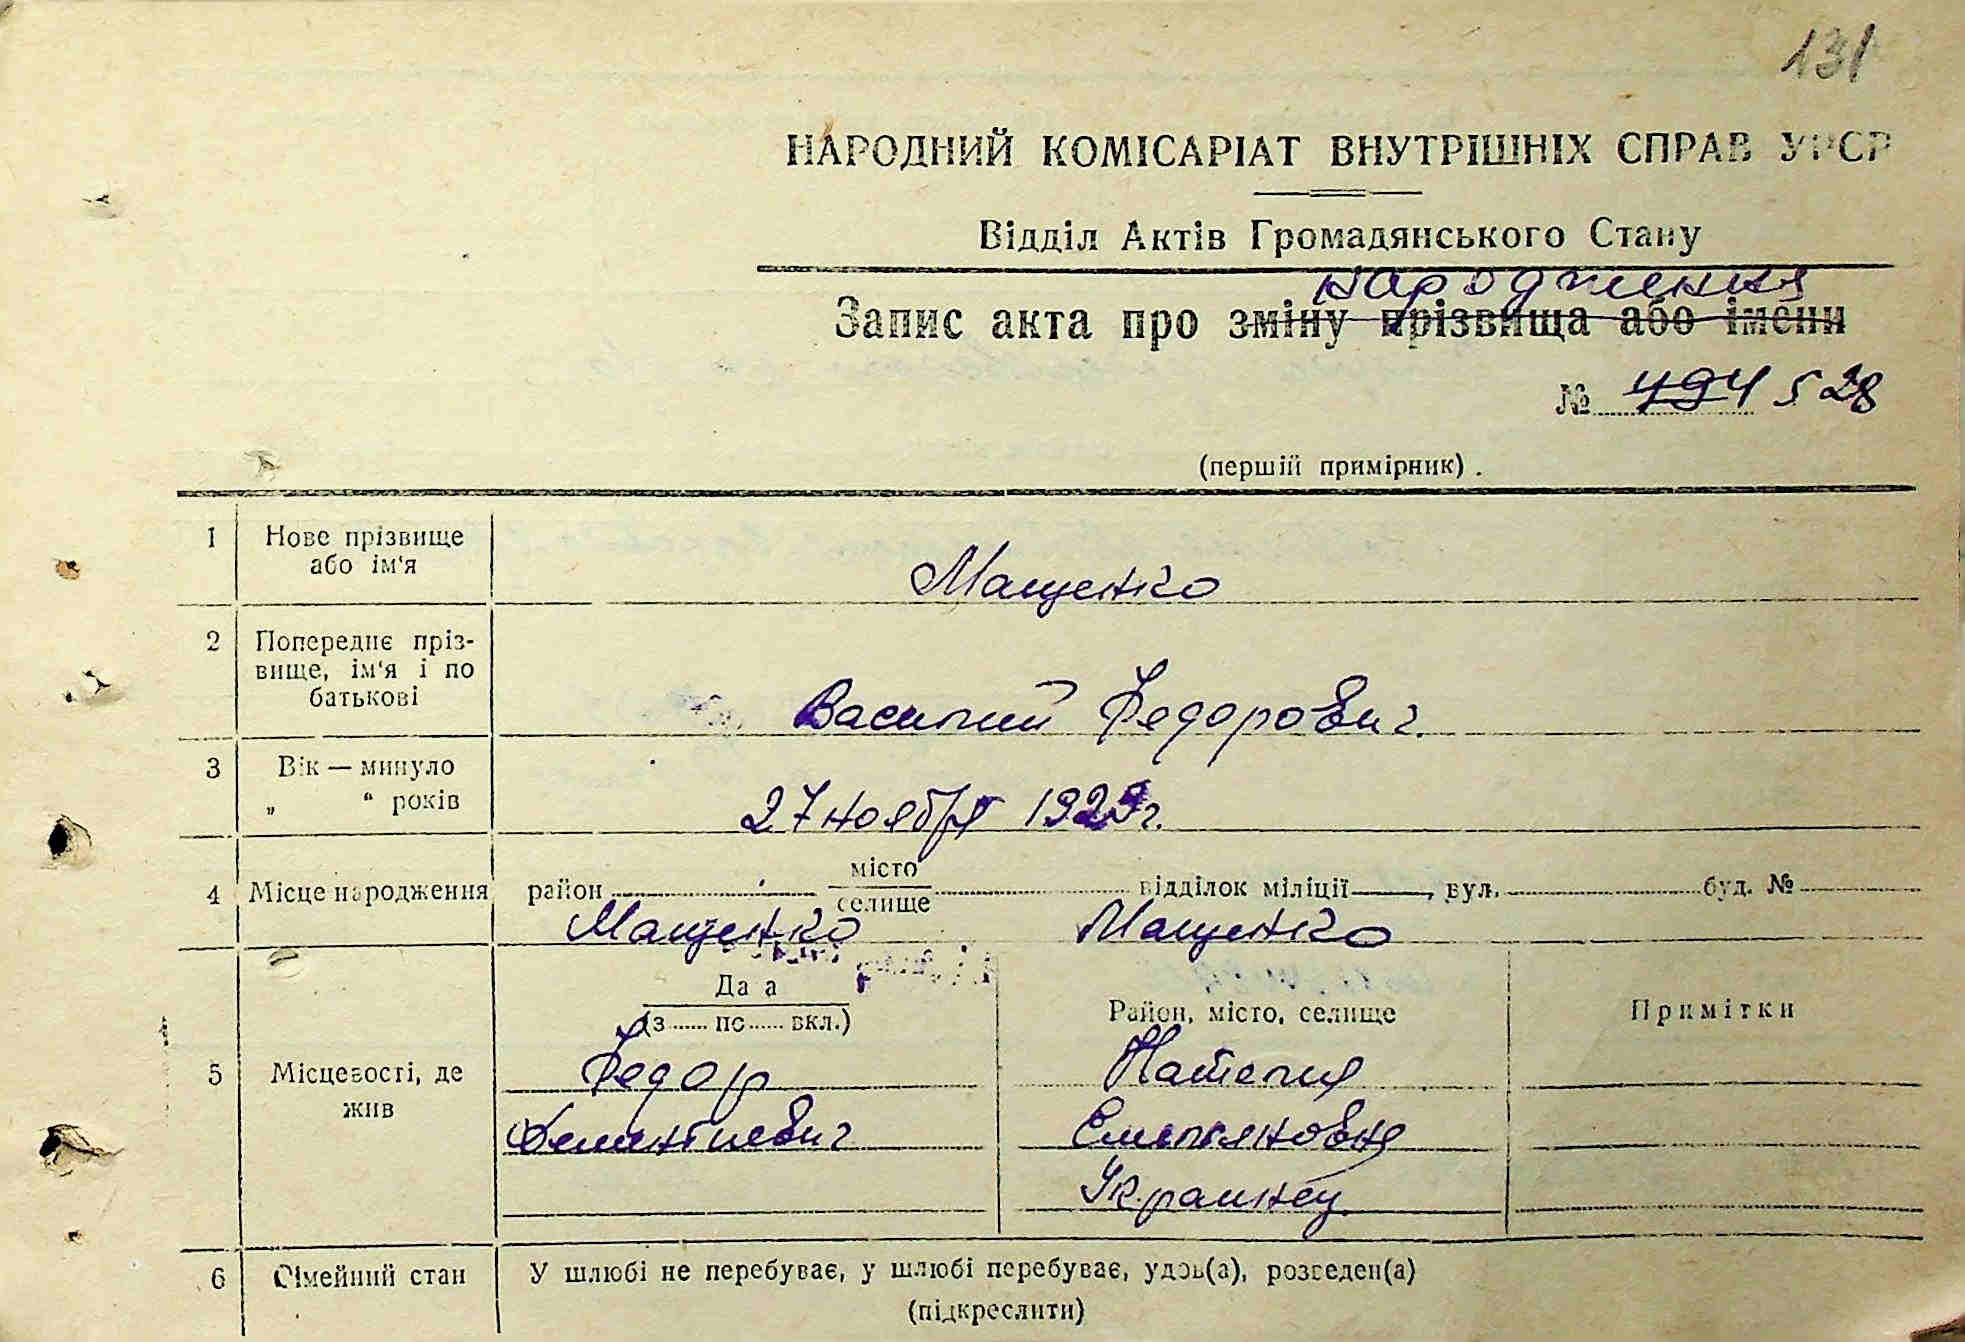 131
НАРОДНИЙ КОМІСАРІАТ ВНУТРІШНІХ СПРАВ УРСР
Відділ Актів Громадянського Стану
народження
Запис акта про зміну прізвища або імени
№ 494 528
(перший примірник).
1 Нове прізвище або ім'я
Мащенко
2 Попереднє пріз-
вище, ім'я і по
батькові
Василий Федорович.
3 Вік — минуло
„ “ років
27 ноября 1929г.
4 Місце народження район місто відділок міліції, вул. буд. №
селище
Мащенко Мащенко
Дата
(з ...... по ...... вкл.)
Район, місто, селище
Примітки
5 Місцевості, де
жив
Федор Наталия
Дементиевич Емельяновна
Украинец
6 Сімейний стан У шлюбі не перебуває, у шлюбі перебуває, удов(а), розведен(а)
(підкреслити)